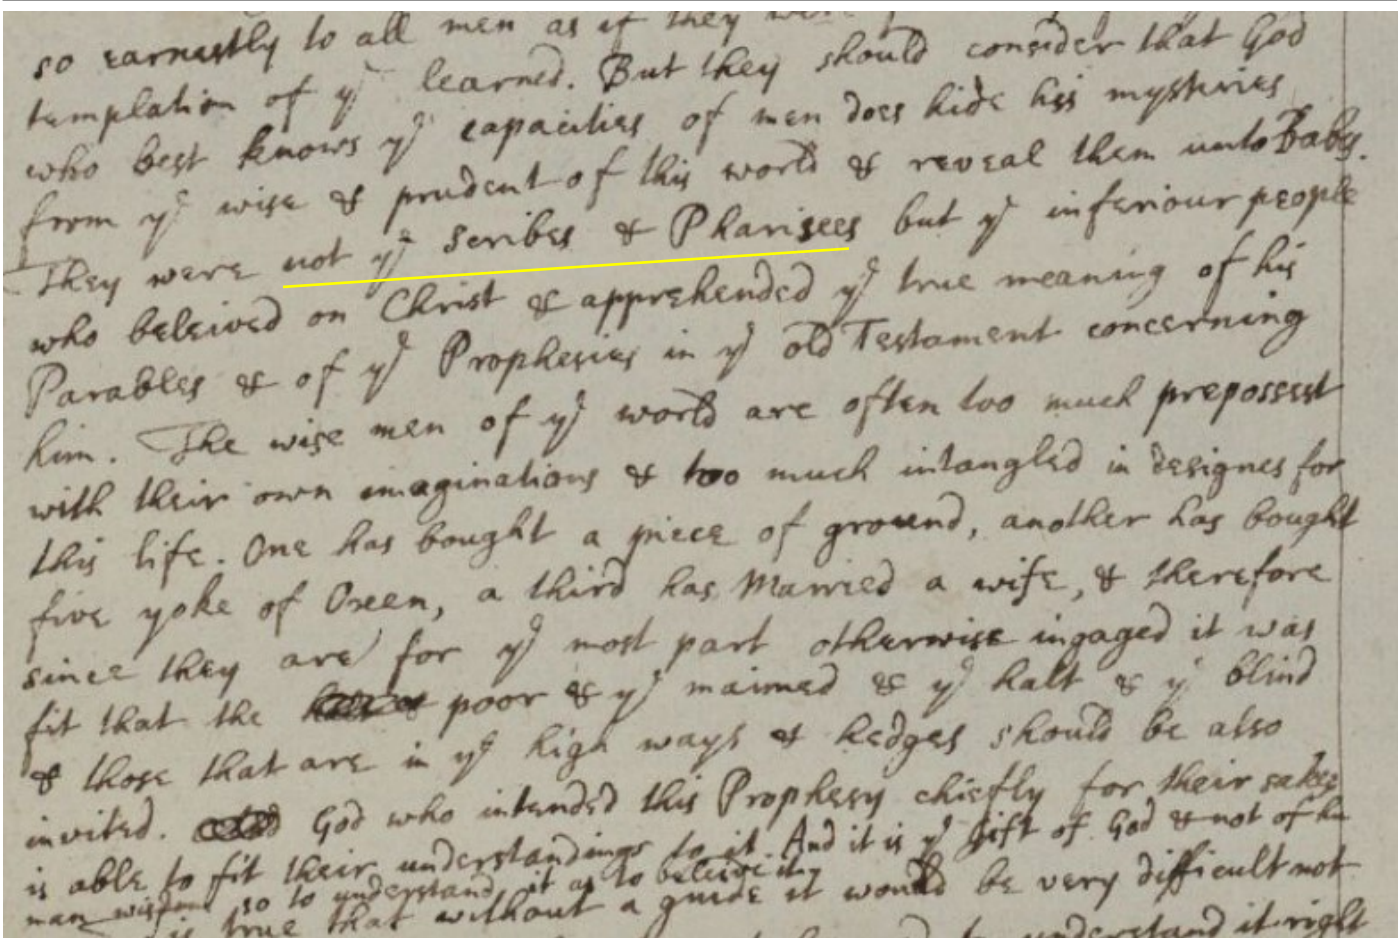 so earnestly to all men as if they
templation of ye learned. But they should consider that God
who best knows ye capacities of men does hide his mysteries
from ye wise & prudent of this world & reveal them unto Babes.
They were not ye scribes & Pharisees but ye inferiour people
who beleived on Christ & apprehended ye true meaning of his
Parables & of ye Prophesies in ye old Testament concerning
him. The wise men of ye world are often too much prepossest
with their own imaginations & too much intangled in designes for
this life. One has bought a piece of ground, another has bought
five yoke of Oxen, a third has Married a wife, & therefore
since they are for ye most part otherwise ingaged it was
fit that the poor & ye maimed & ye halt & ye blind
& those that are in ye high ways & hedges should be also
invited. God who intended this Prophesy chiefly for their sakes
is able to fit their understandings to it. And it is ye gift of God & not of
man wisdom so to understand it as to beleive it.
is true that without a guide it would be very difficult not
understand it right